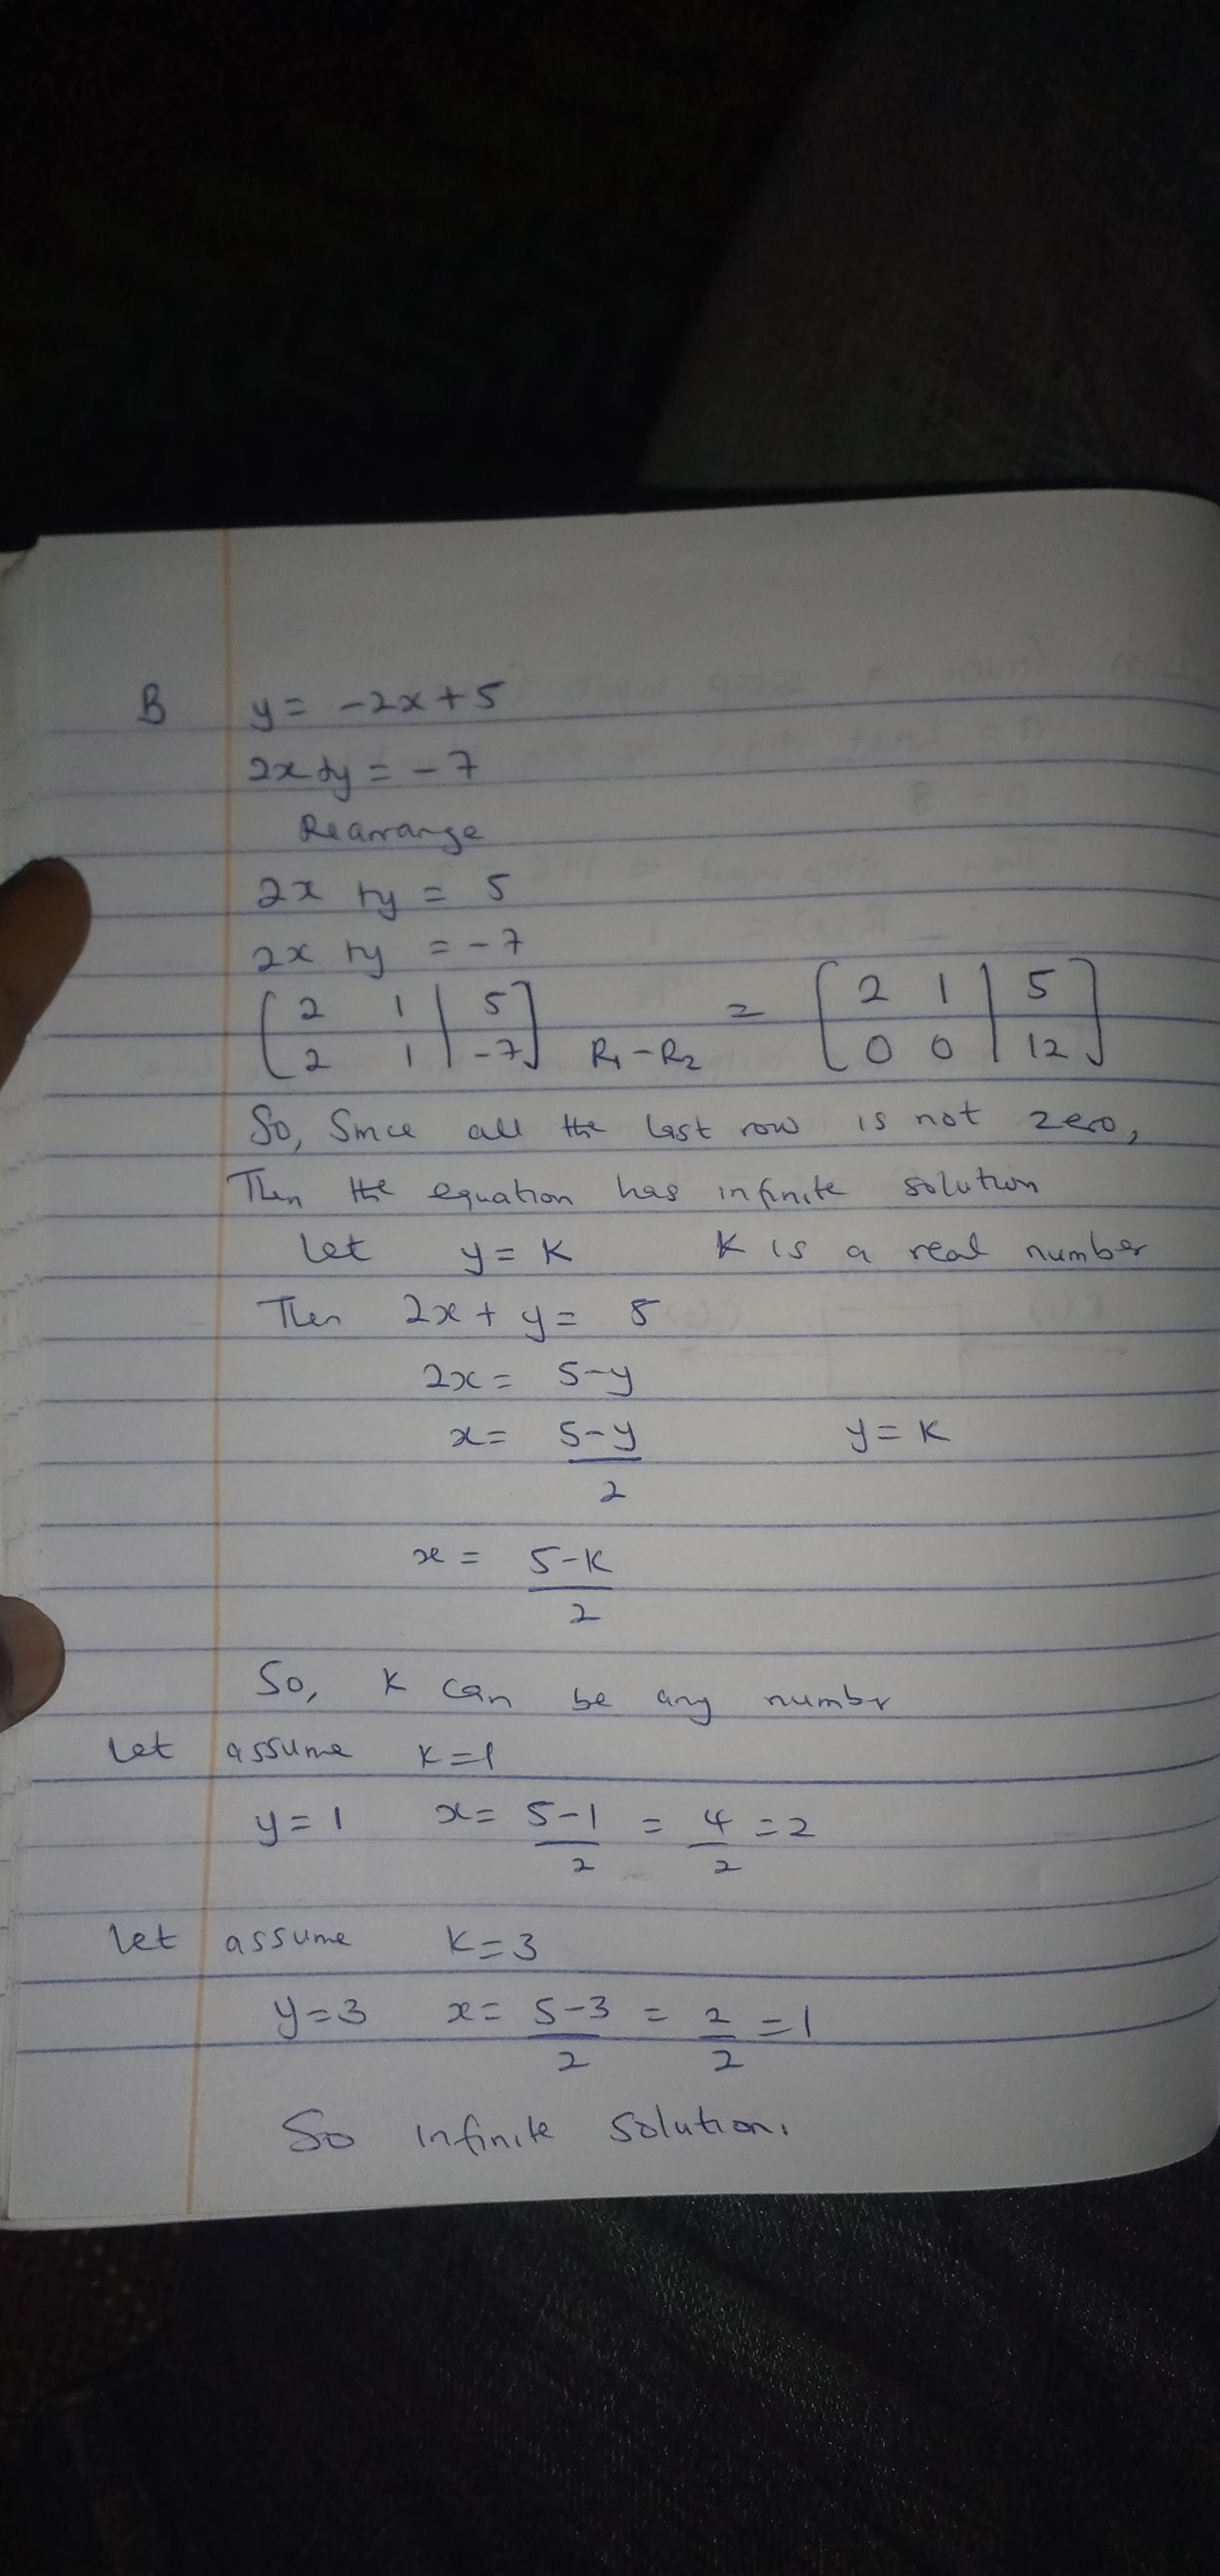 B y = -2x+5
2x+y = -7
Rearrange
2x +y = 5
2x +y = -7
[2 1 | 5] = [2 1 | 5]
[2 1 | -7] R1-R2 [0 0 | 12]
So, Since all the last row is not zero,
Then the equation has infinite solution
Let y = K K is a real number
Then 2x + y = 5
2x = 5-y
x = 5-y y = K
2
x = 5-K
2
So, K can be any numbr
Let assume K=1
y=1 x= 5-1 = 4 =2
2 2
Let assume K=3
y=3 x= 5-3 = 2 =1
2 2
So Infinite Solution.